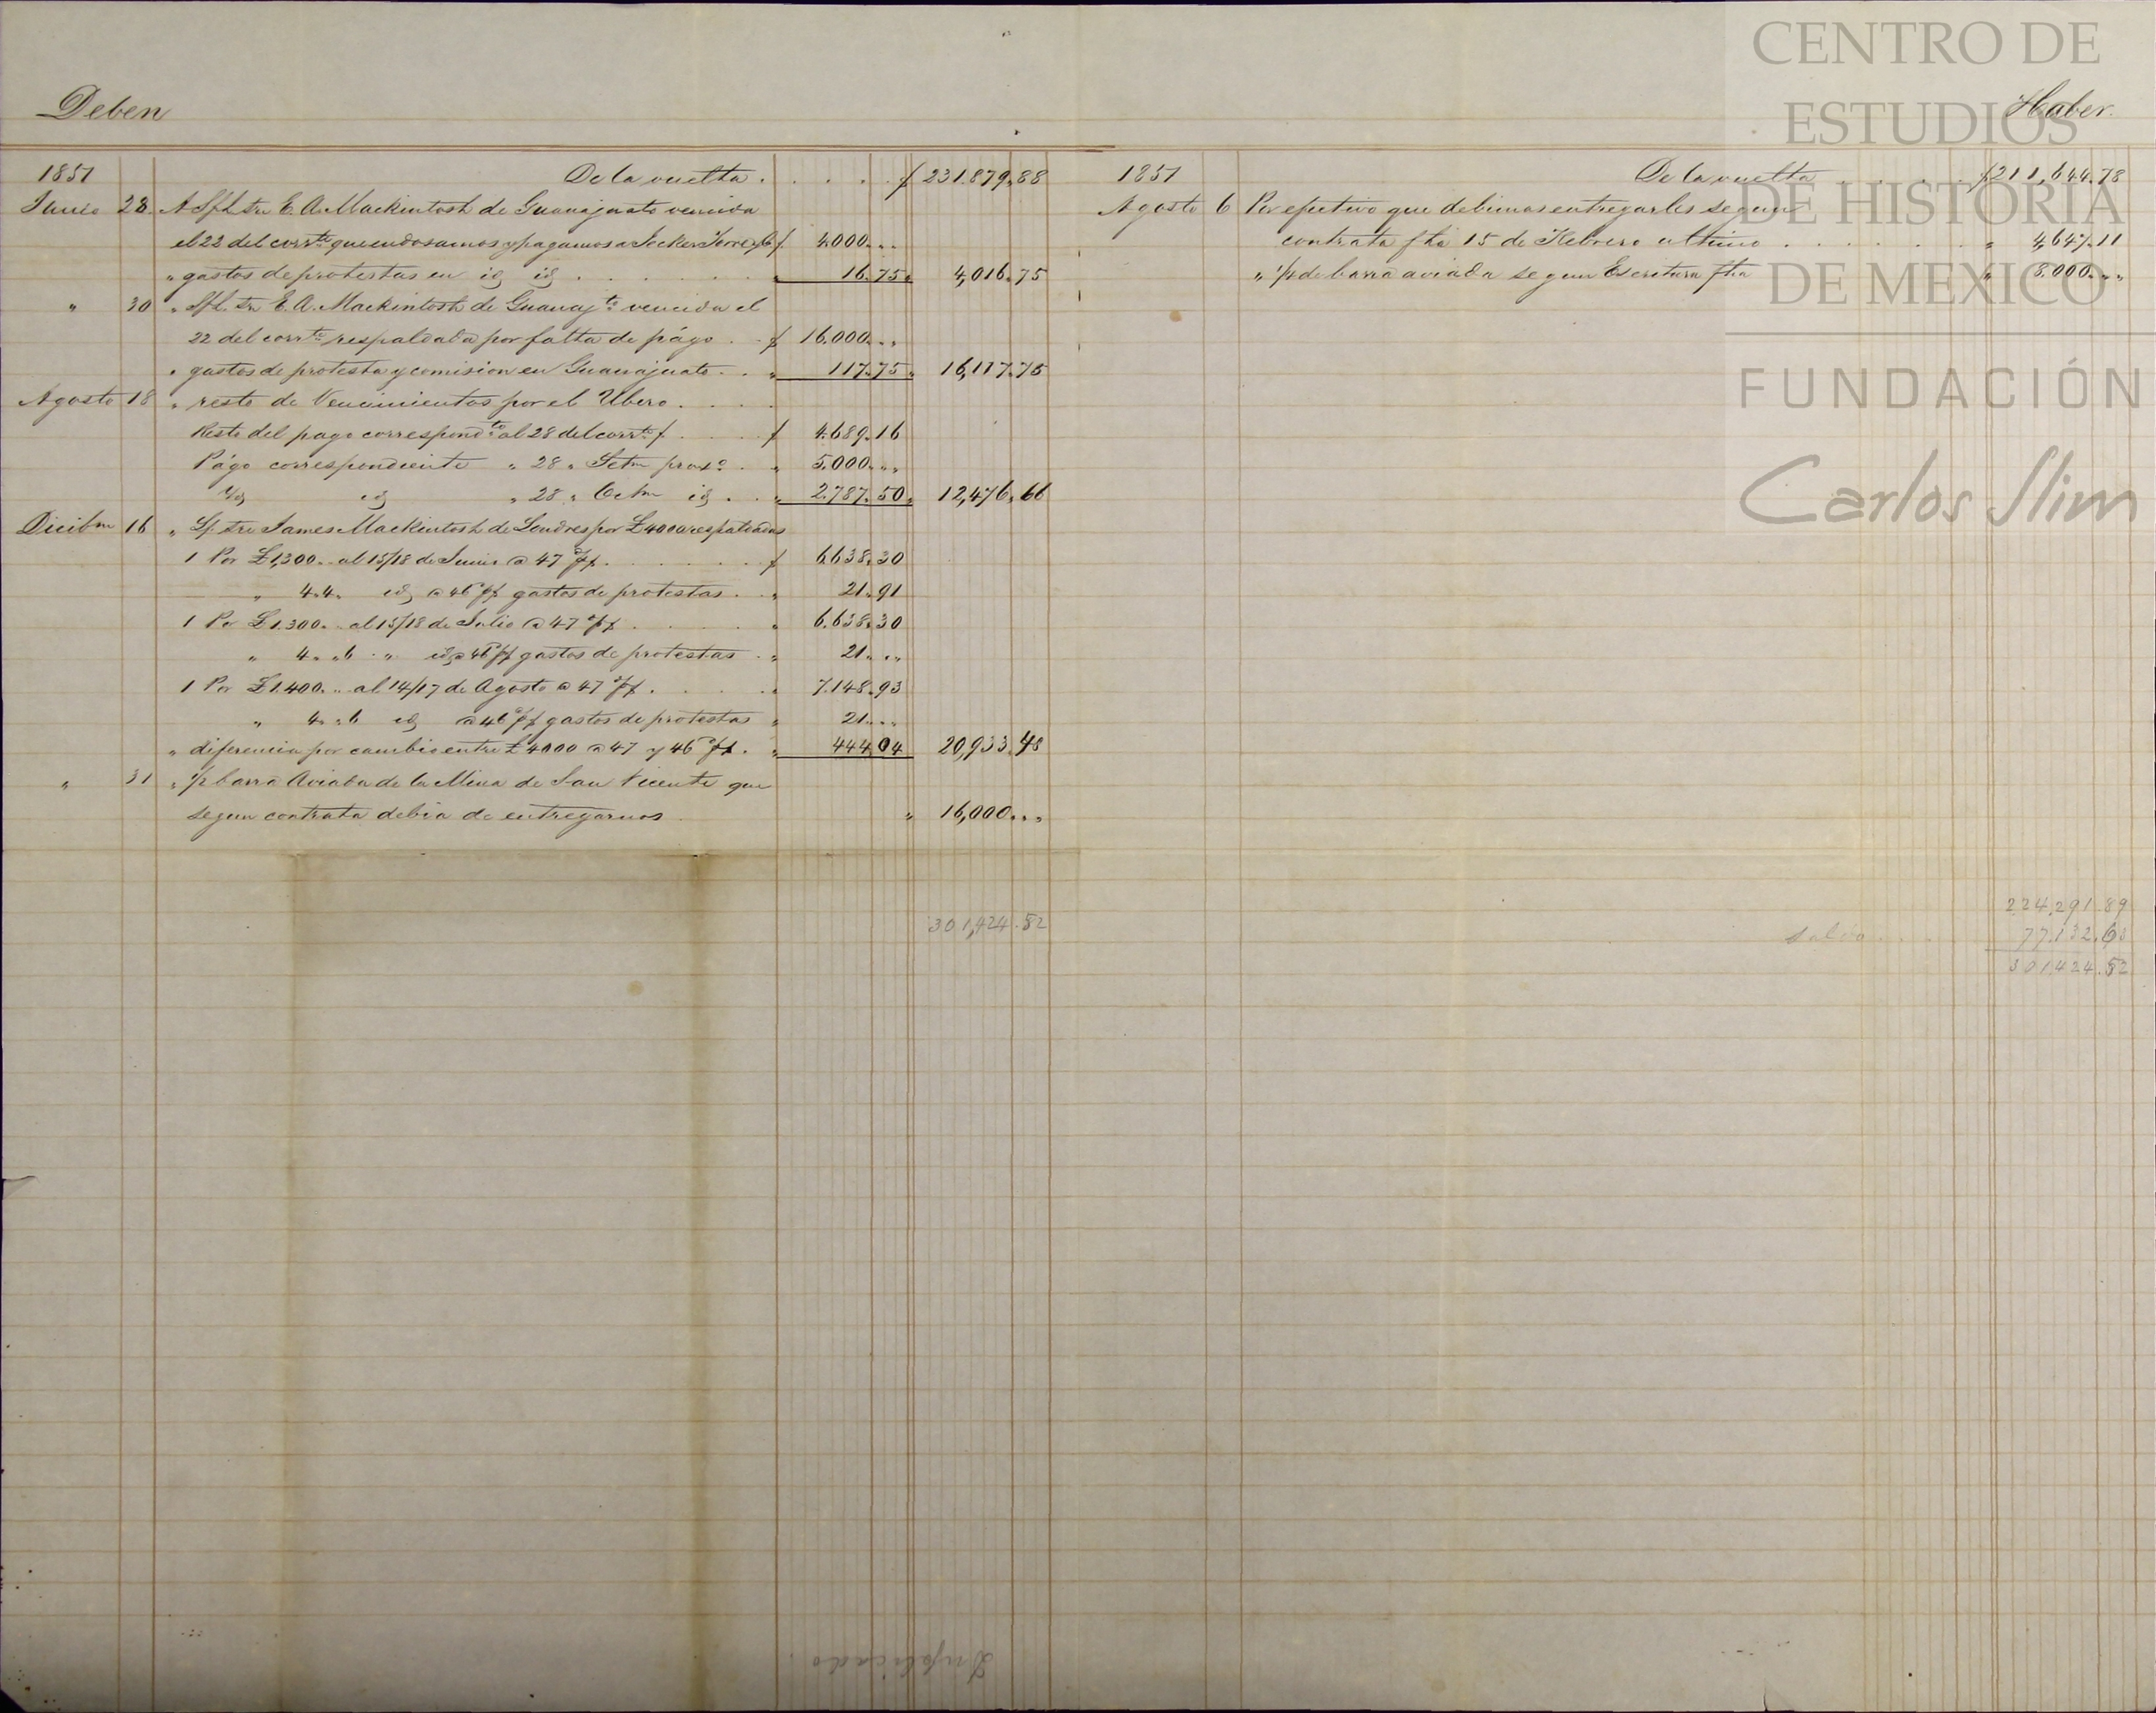 Deben
1851 De la vuelta . . . . . $ 231.879,,88
Junio 28 A S/L s/n E. A. Mackintosh de Guanajuato vencida
el 22 del corrte que endosamos y pagamos a Jecker Torre y Ca $ 4.000 ,,
" gastos de protestas en id id . . . . " 16.75 " 4,016.75
" 30 " S/L s/n E. A. Mackintosh de Guanajto vencida el
22 del corrte respaldada por falta de págo . . $ 16.000 ,,
" gastos de protesta y comision en Guanajuato . . " 117.75 " 16,117.75
Agosto 18 " resto de Vencimientos por el Ubero . . . .
Resto del pago correspondte al 28 del corrte $ . . . $ 4.689.16
Págo correspondiente " 28 " Setm proxo . " 5.000 ,,
id id " 28 " Octm id . . " 2.787.50 " 12,476.66
Dicibm 16 " James Mackintosh de Londres por £4000 respaldadas
1 Por £1,300 .. al 15/18 de Junio @ 47 . . . . . $ 6.638.30
" 4.4. id @ 46 gastos de protestas . . " 21.91
1 Por £1.300 .. al 15/18 de Julio @ 47 . . . . " 6.638.30
" 4. " 6 " id @ 46 gastos de protestas . " 21 ,,
1 Por £1.400 .. al 14/17 de Agosto @ 47 . . . . " 7.148.93
" 4. " 6 id @ 46 gastos de protestas " 21 ,,
" diferencia por cambio entre £ 4000 @ 47 y 46 . " 444.04 20,933.48
" 31 " 1/2 barra Aviada de la Mina de San Vicente que
segun contrata debia de entregarnos " 16,000 ,,
301,424.52
Duplicado
Haber.
1851 De la vuelta . . . . . $ 211,644.78
Agosto 6 Por efectivo que debimos entregarles segun
contrata fha 15 de Febrero ultimo . . . . . " 4,647.11
" 1/4 de barra aviada segun Escritura fha " 8.000 ,,
224,291.89
saldo . . . 77.132.63
301,424.52
CENTRO DE
ESTUDIOS
DE HISTORIA
DE MEXICO
FUNDACIÓN
Carlos Slim